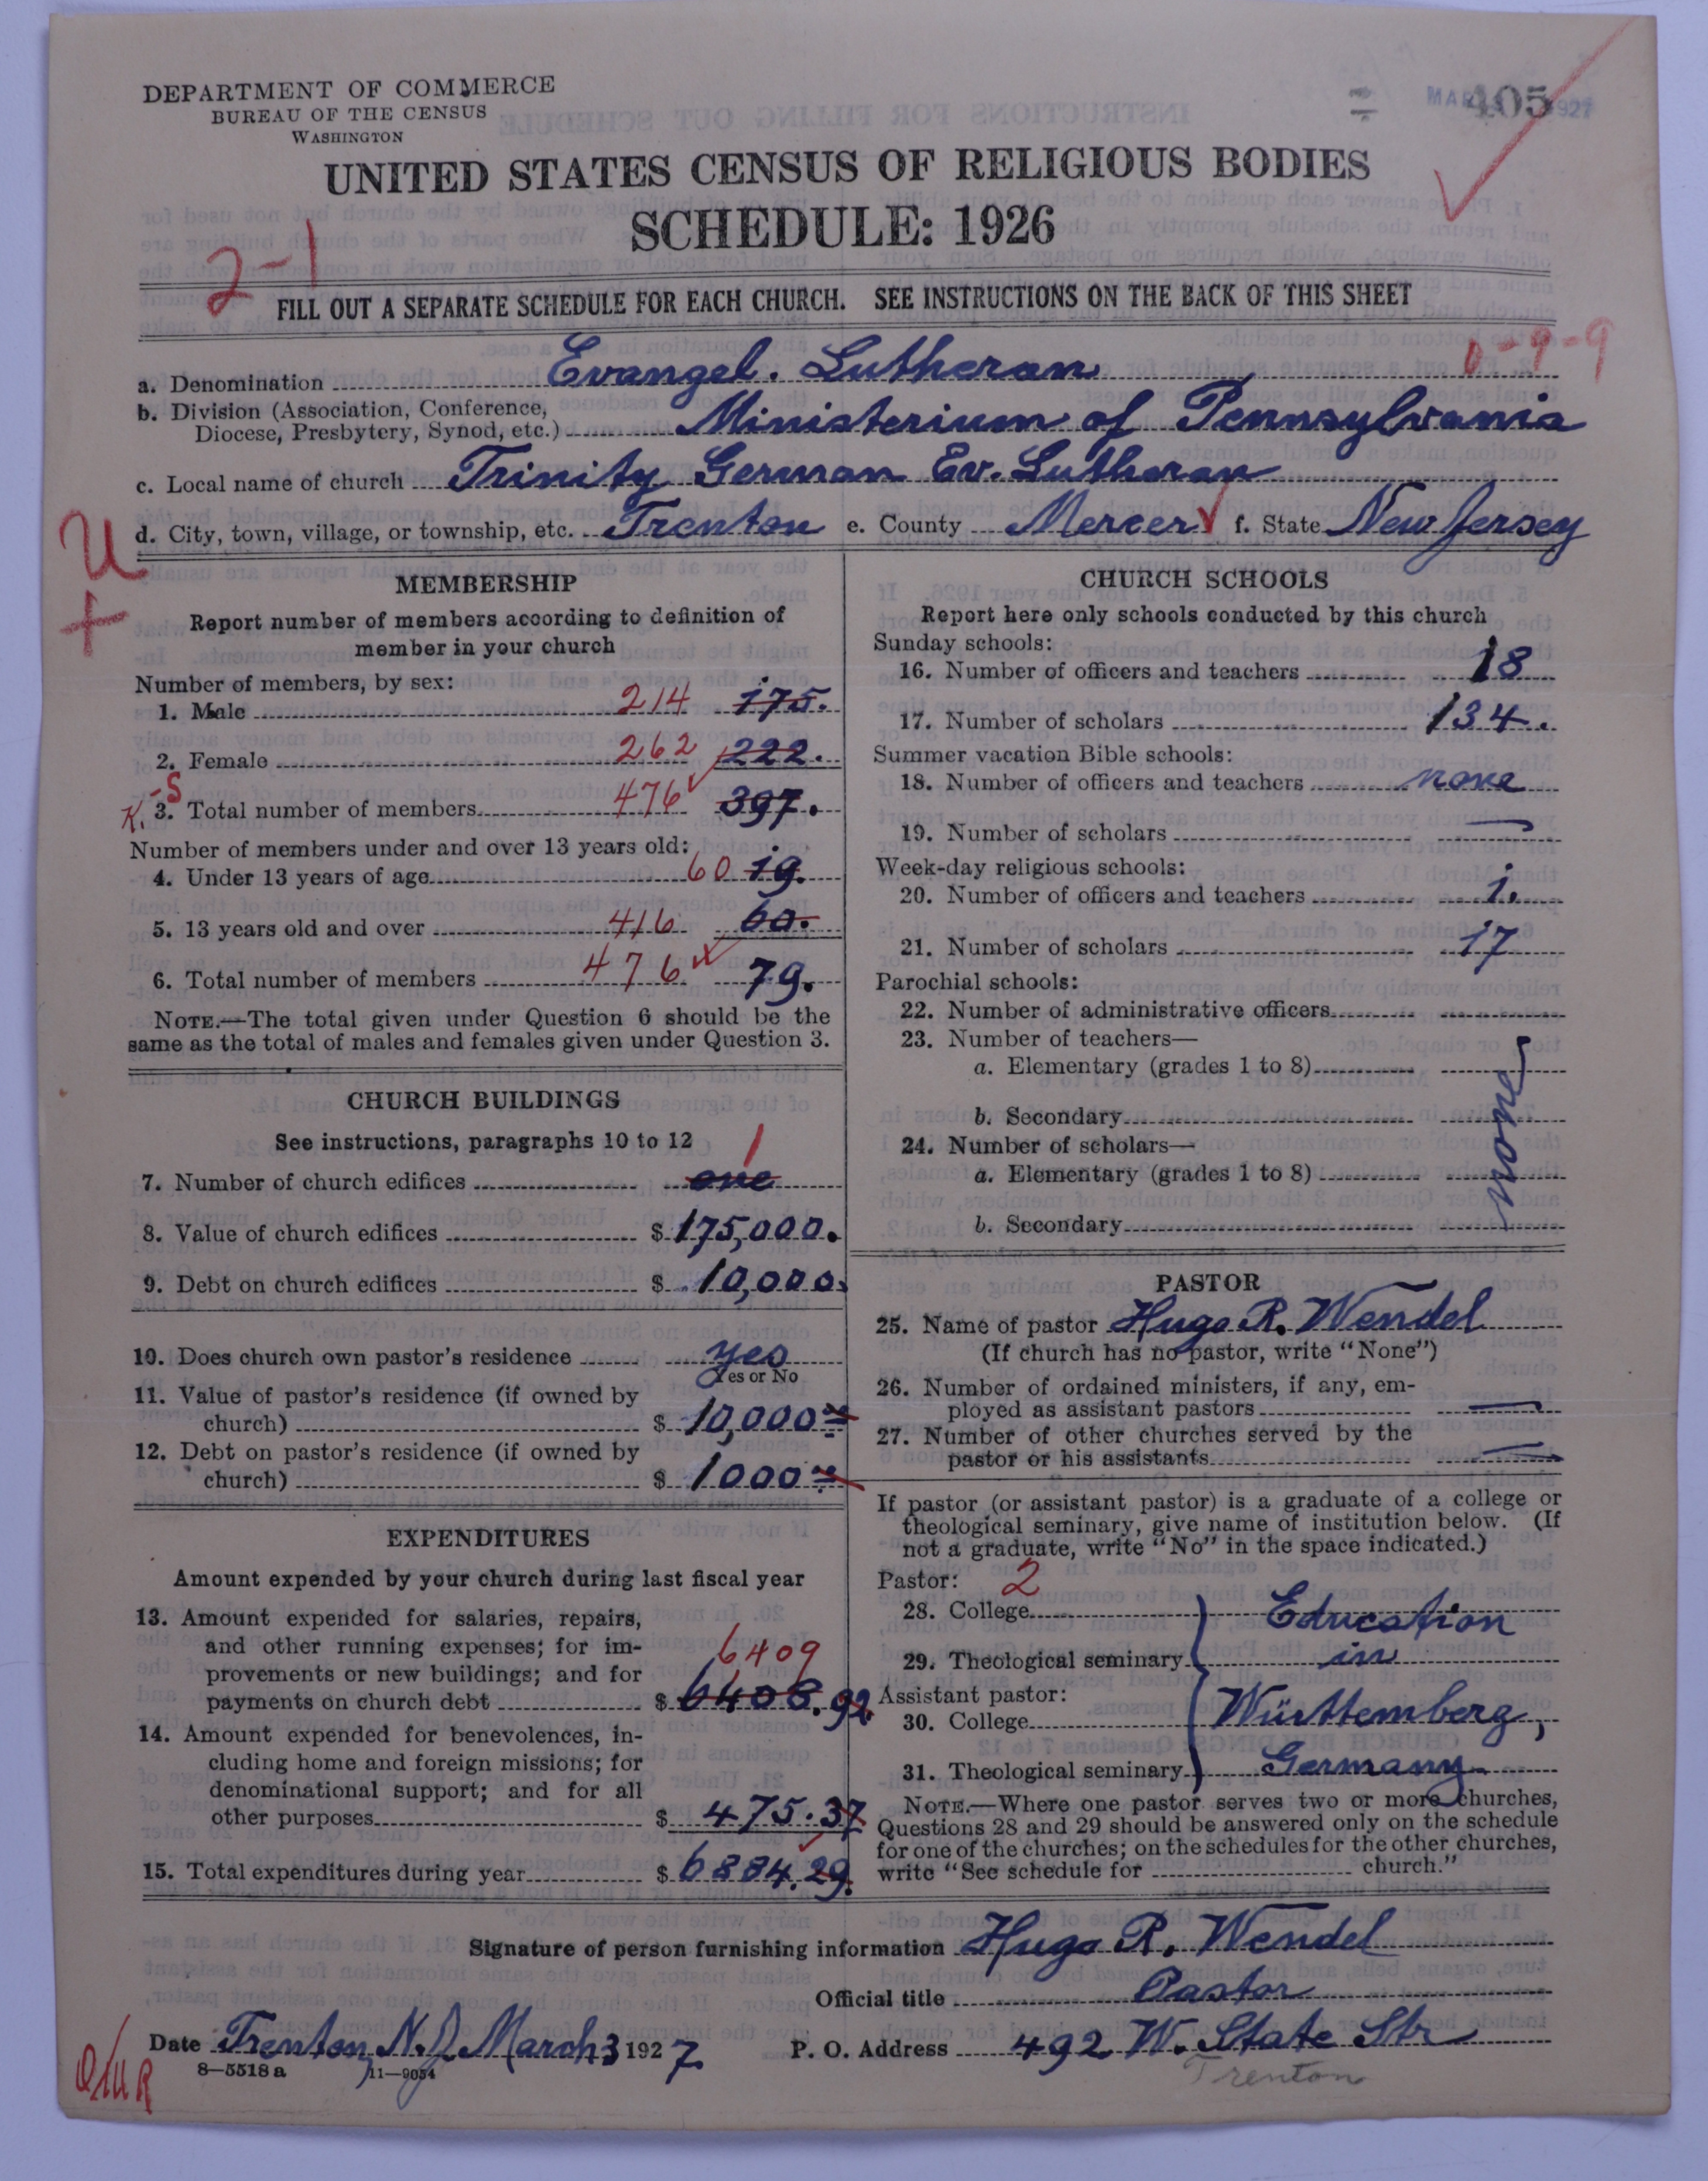 DEPARTMENT OF COMMERCE
BUREAU OF THE CENSUS
WASHINGTON
MAR 1927
405
UNITED STATES CENSUS OF RELIGIOUS BODIES
SCHEDULE: 1926
2-1
FILL OUT A SEPARATE SCHEDULE FOR EACH CHURCH. SEE INSTRUCTIONS ON THE BACK OF THIS SHEET
0-9-9
a. Denomination Evangel. Lutheran
b. Division (Association, Conference, Diocese, Presbytery, Synod, etc.) Ministerium of Pennsylvania
c. Local name of church Trinity German Ev. Lutheran
d. City, town, village, or township, etc. Trenton e. County Mercer f. State New Jersey
U
+
MEMBERSHIP
Report number of members according to definition of
member in your church
Number of members, by sex:
1. Male 214 175.
2. Female 262 222.
K. -S
3. Total number of members 476 397.
Number of members under and over 13 years old:
4. Under 13 years of age 60 19.
5. 13 years old and over 416 60.
6. Total number of members 476 79.
NOTE.—The total given under Question 6 should be the
same as the total of males and females given under Question 3.
CHURCH BUILDINGS
See instructions, paragraphs 10 to 12
1
7. Number of church edifices one
8. Value of church edifices $ 175,000.
9. Debt on church edifices $ 10,000.
10. Does church own pastor's residence yes
Yes or No
11. Value of pastor's residence (if owned by
church) $ 10,000
12. Debt on pastor's residence (if owned by
church) $ 1000
EXPENDITURES
Amount expended by your church during last fiscal year
13. Amount expended for salaries, repairs,
and other running expenses; for im-
provements or new buildings; and for
6409
payments on church debt $ 6408.92
14. Amount expended for benevolences, in-
cluding home and foreign missions; for
denominational support; and for all
other purposes $ 475.37
15. Total expenditures during year $ 6884.29.
CHURCH SCHOOLS
Report here only schools conducted by this church
Sunday schools:
16. Number of officers and teachers 18
17. Number of scholars 134.
Summer vacation Bible schools:
18. Number of officers and teachers none
19. Number of scholars —
Week-day religious schools:
20. Number of officers and teachers 1.
21. Number of scholars 17
Parochial schools:
22. Number of administrative officers
23. Number of teachers—
a. Elementary (grades 1 to 8)
b. Secondary
24. Number of scholars—
a. Elementary (grades 1 to 8)
b. Secondary
none
PASTOR
25. Name of pastor Hugo R. Wendel
(If church has no pastor, write "None")
26. Number of ordained ministers, if any, em-
ployed as assistant pastors —
27. Number of other churches served by the
pastor or his assistants —
If pastor (or assistant pastor) is a graduate of a college or
theological seminary, give name of institution below. (If
not a graduate, write "No" in the space indicated.)
Pastor: 2
28. College Education
29. Theological seminary in
Assistant pastor:
30. College Württemberg,
31. Theological seminary Germany
NOTE.—Where one pastor serves two or more churches,
Questions 28 and 29 should be answered only on the schedule
for one of the churches; on the schedules for the other churches,
write "See schedule for church."
Signature of person furnishing information Hugo R. Wendel
Official title Pastor
Date Trenton, N.J. March 3 1927. P. O. Address 492 W. State Str
Trenton
8-5518 a 11-9054